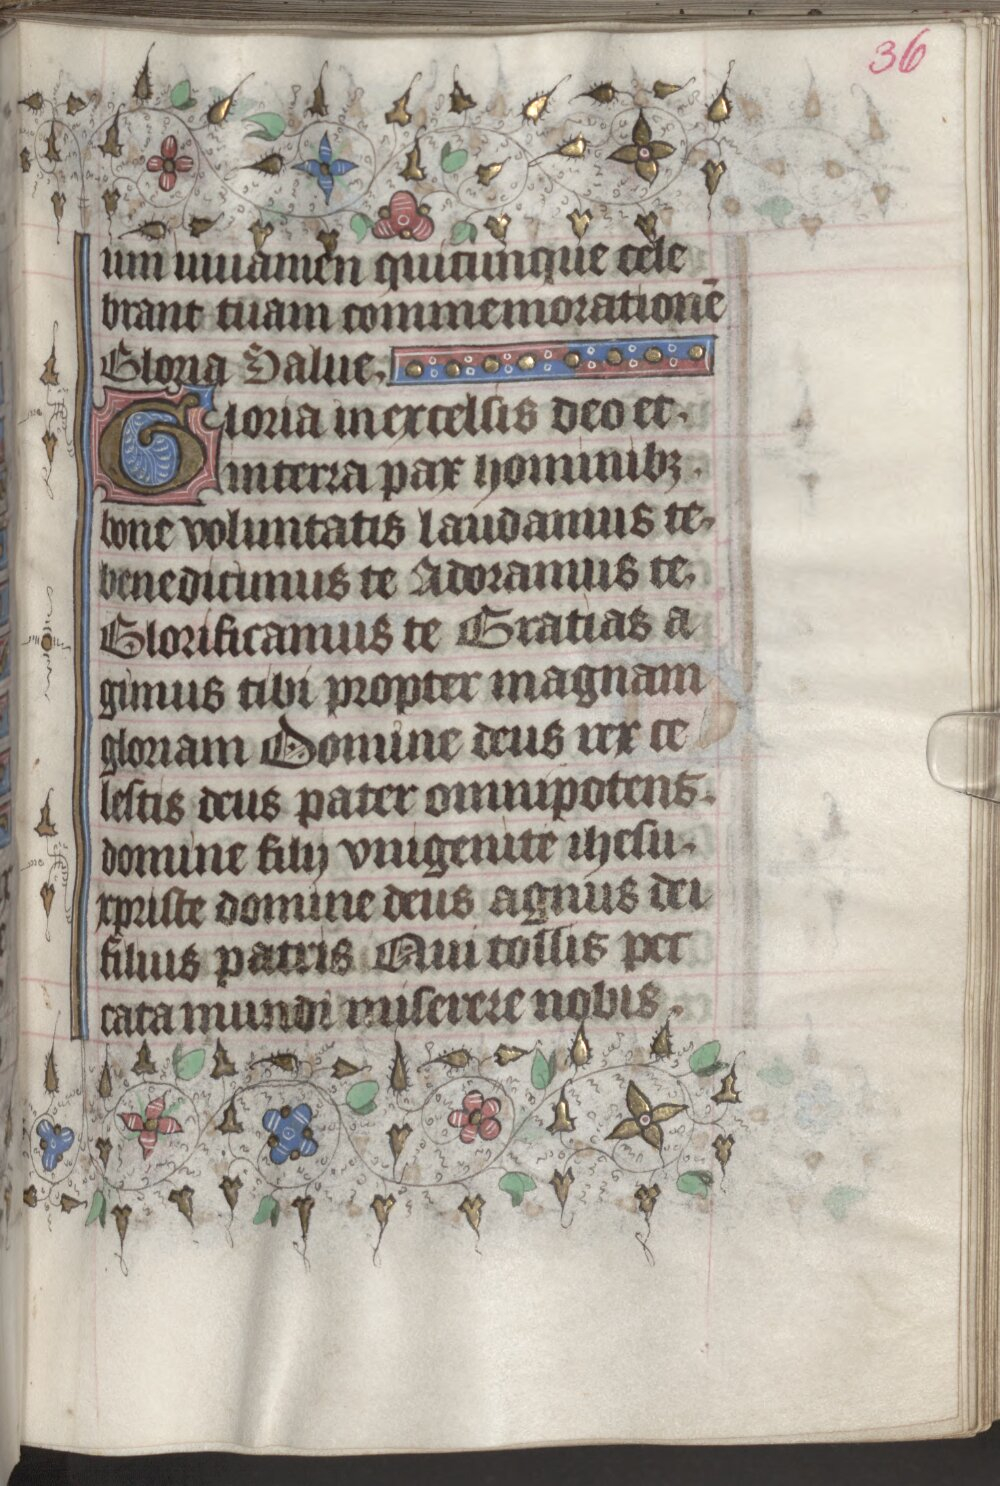 36
um iuuamen quicunque cele
brant tuam commemorationē
Gloria Salue.
Gloria in excelsis deo et.
in terra pax hominibꝫ.
bone voluntatis laudamus te.
benedicimus te Adoramus te.
Glorificamus te Gratias a
gimus tibi propter magnam
gloriam Domine deus rex ce
lestis deus pater omnipotens.
domine filij vnigenite ihesu.
xpriste domine deus agnus dei
filius patris Qui tollis pec
cata mundi miserere nobis.